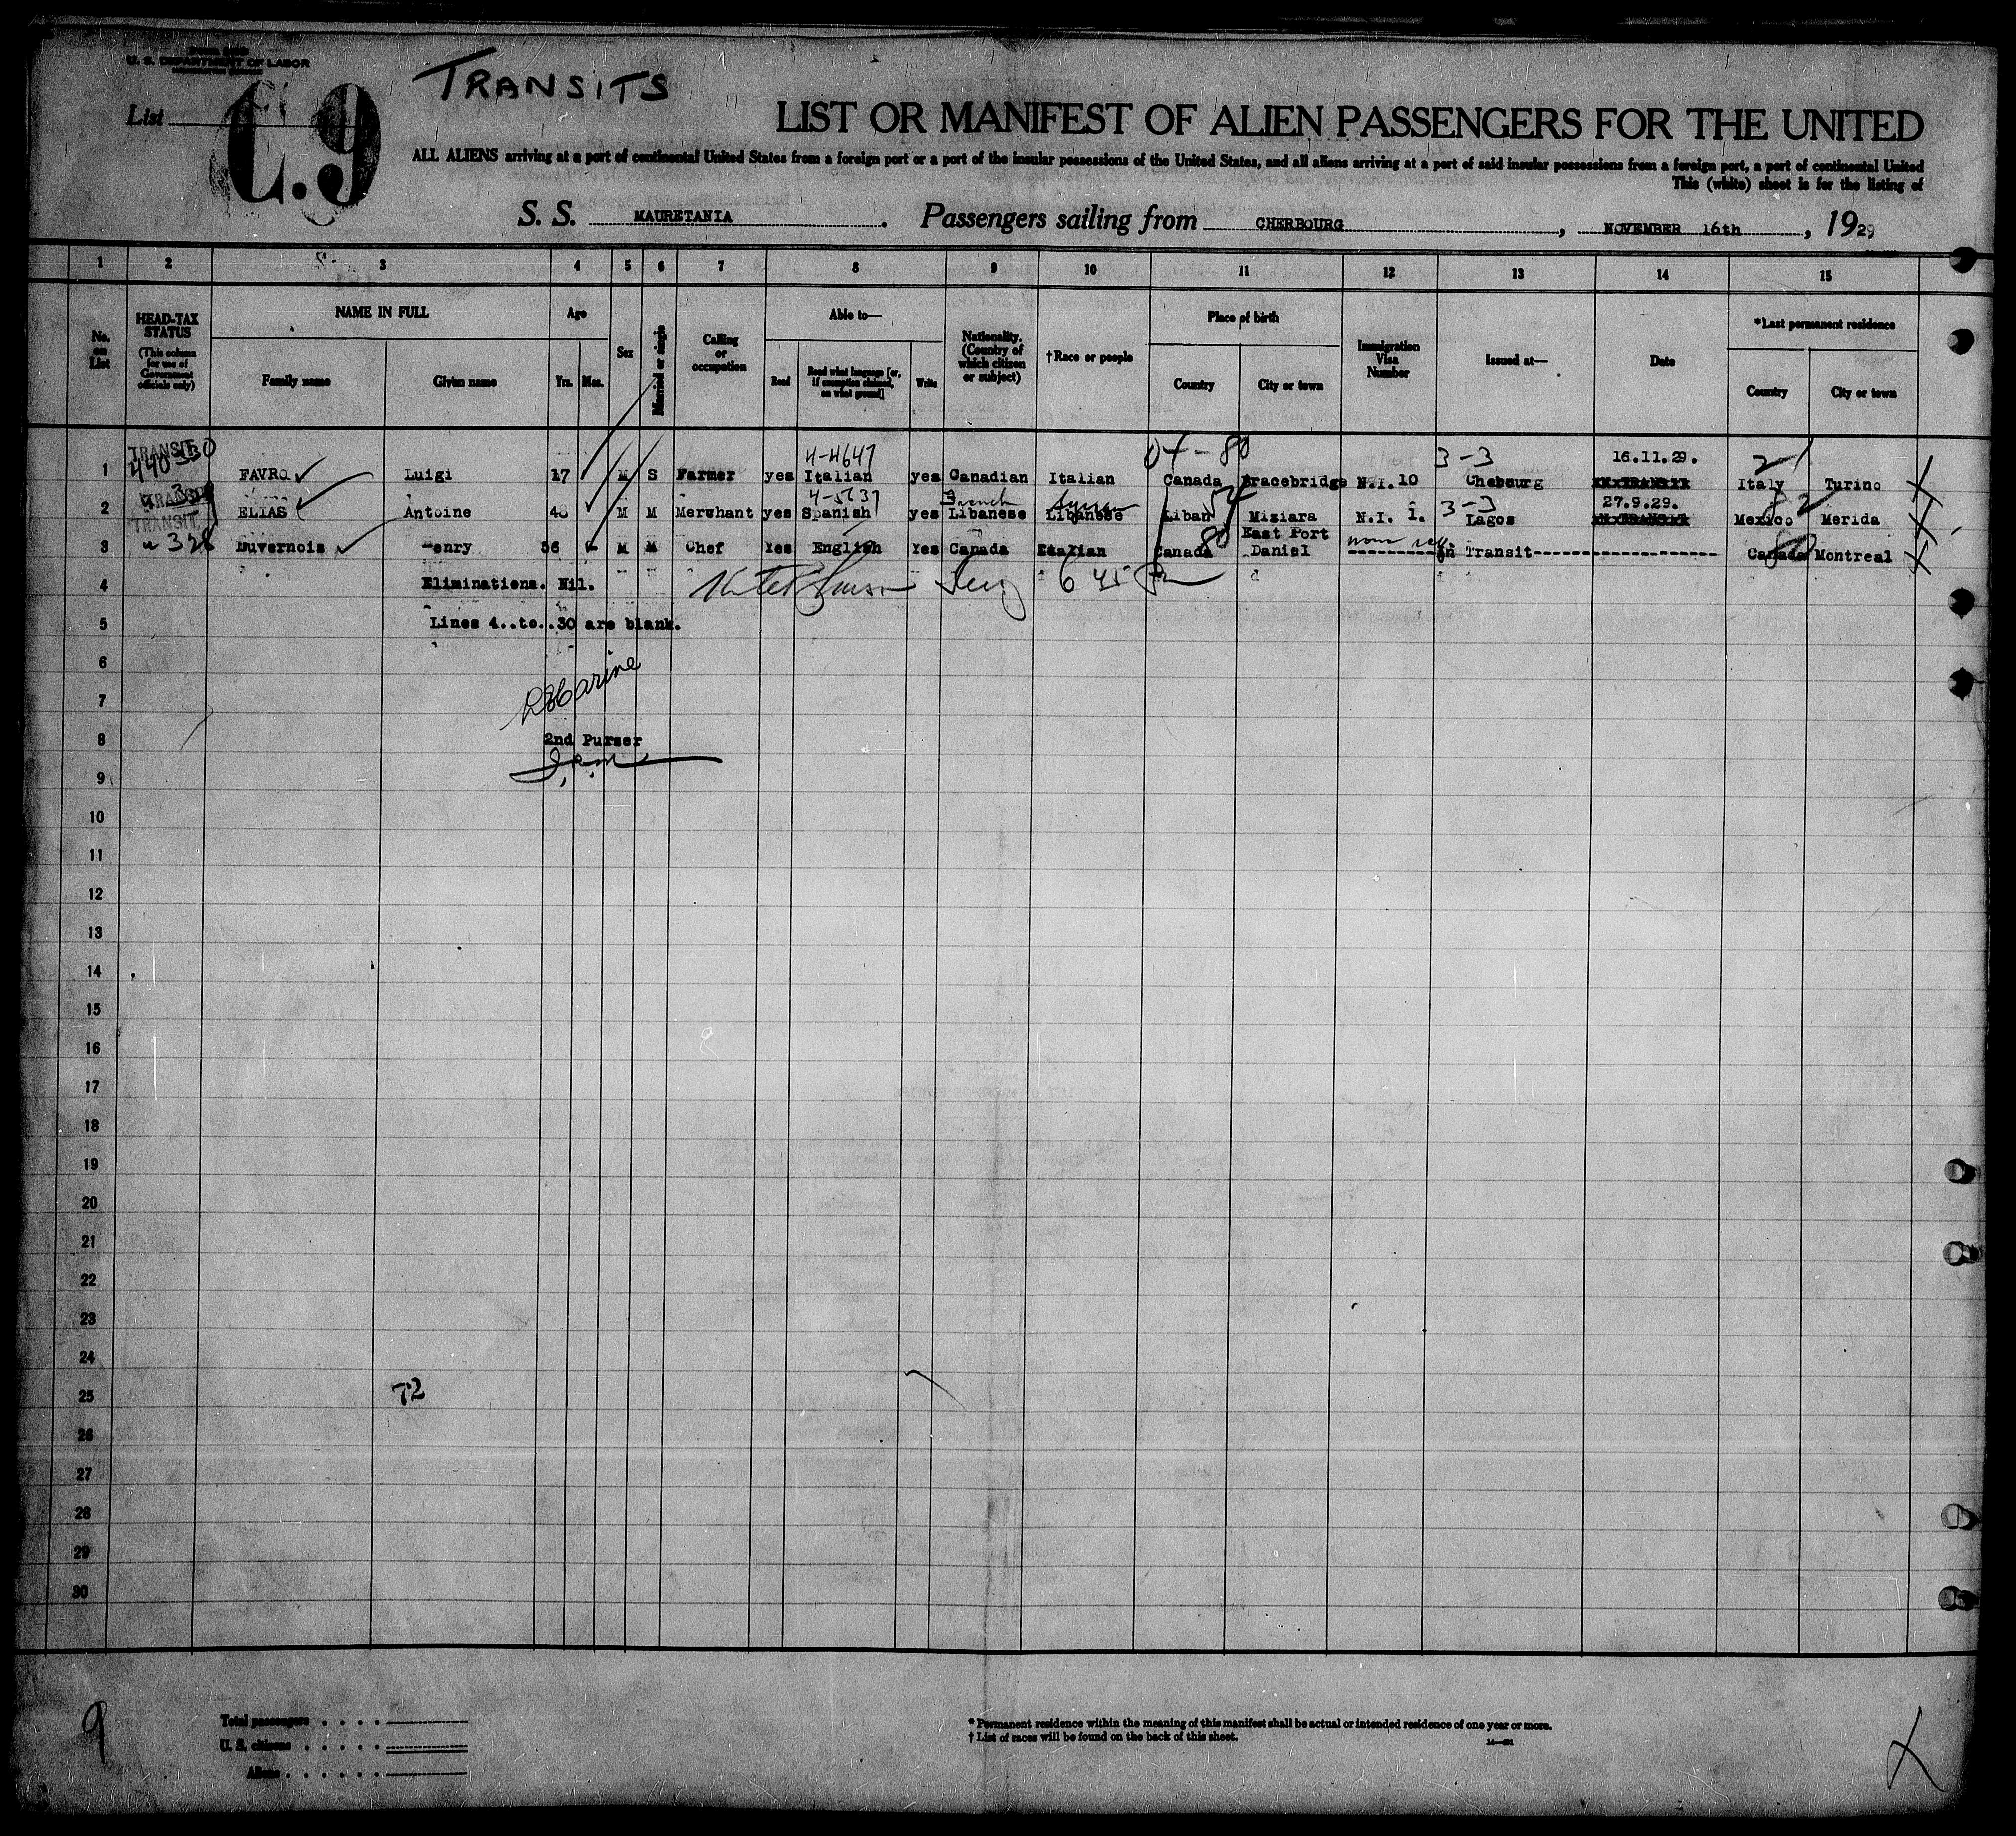 U. S. DEPARTMENT OF LABOR
TRANSITS
List
C.9
LIST OR MANIFEST OF ALIEN PASSENGERS FOR THE UNITED
ALL ALIENS arriving at a port of continental United States from a foreign port or a port of the insular possessions of the United States, and all aliens arriving at a port of said insular possessions from a foreign port, a port of continental United
This (white) sheet is for the listing of
S. S. MAURETANIA. Passengers sailing from CHERBOURG, NOVEMBER 16th, 1929
1 2 3 4 5 6 7 8 9 10 11 12 13 14 15
No. on List
HEAD-TAX STATUS (This column for use of Government officials only)
NAME IN FULL
Family name Given name
Age
Yrs. Mos.
Sex
Married or single
Calling or occupation
Able to—
Read Read what language [or, if exemption claimed, on what ground] Write
Nationality. (Country of which citizen or subject)
†Race or people
Place of birth
Country City or town
Immigration Visa Number
Issued at—
Date
*Last permanent residence
Country City or town
TRANSIT 4-4647 04-80 3-3 16.11.29. 21
1 FAVRO Luigi 17 M S Farmer yes Italian yes Canadian Italian Canada Bracebridge N.I.10 Chebourg IN TRANSIT Italy Turino
TRANSIT 4-5637 French Syrian 54 3-3 27.9.29. 82
2 ELIAS Antoine 48 M M Merchant yes Spanish yes Libanese Libanese Liban Miziara N.I. 1. Lagos IN TRANSIT Mexico Merida
TRANSIT 328 80 East Port
3 Duvernois Henry 56 M M Chef Yes English Yes Canada Italian Canada Daniel In Transit Canada Montreal
4 Eliminations. Nil. 6 45
5 Lines 4..to..30 are blank.
6
7
8 2nd Purser
9
10
11
12
13
14
15
16
17
18
19
20
21
22
23
24
25 72
26
27
28
29
30
9
Total passengers
U. S. citizens
Aliens
* Permanent residence within the meaning of this manifest shall be actual or intended residence of one year or more.
† List of races will be found on the back of this sheet.
X